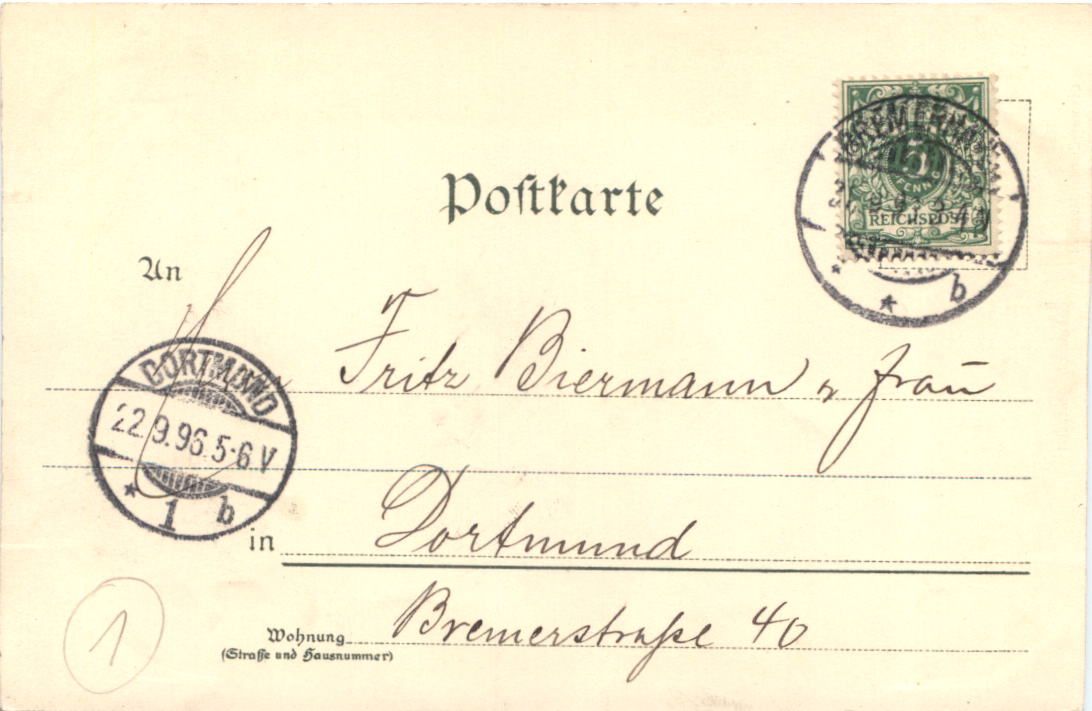 Postkarte
BREMERHAVEN
5
PFENNIG
REICHSPOST
* b
An
Fritz Biermann u frau
DORTMUND
22.9.96.5-6V
* 1 b
in Dortmund
Wohnung Bremerstraße 40
(Straße und Hausnummer)
1